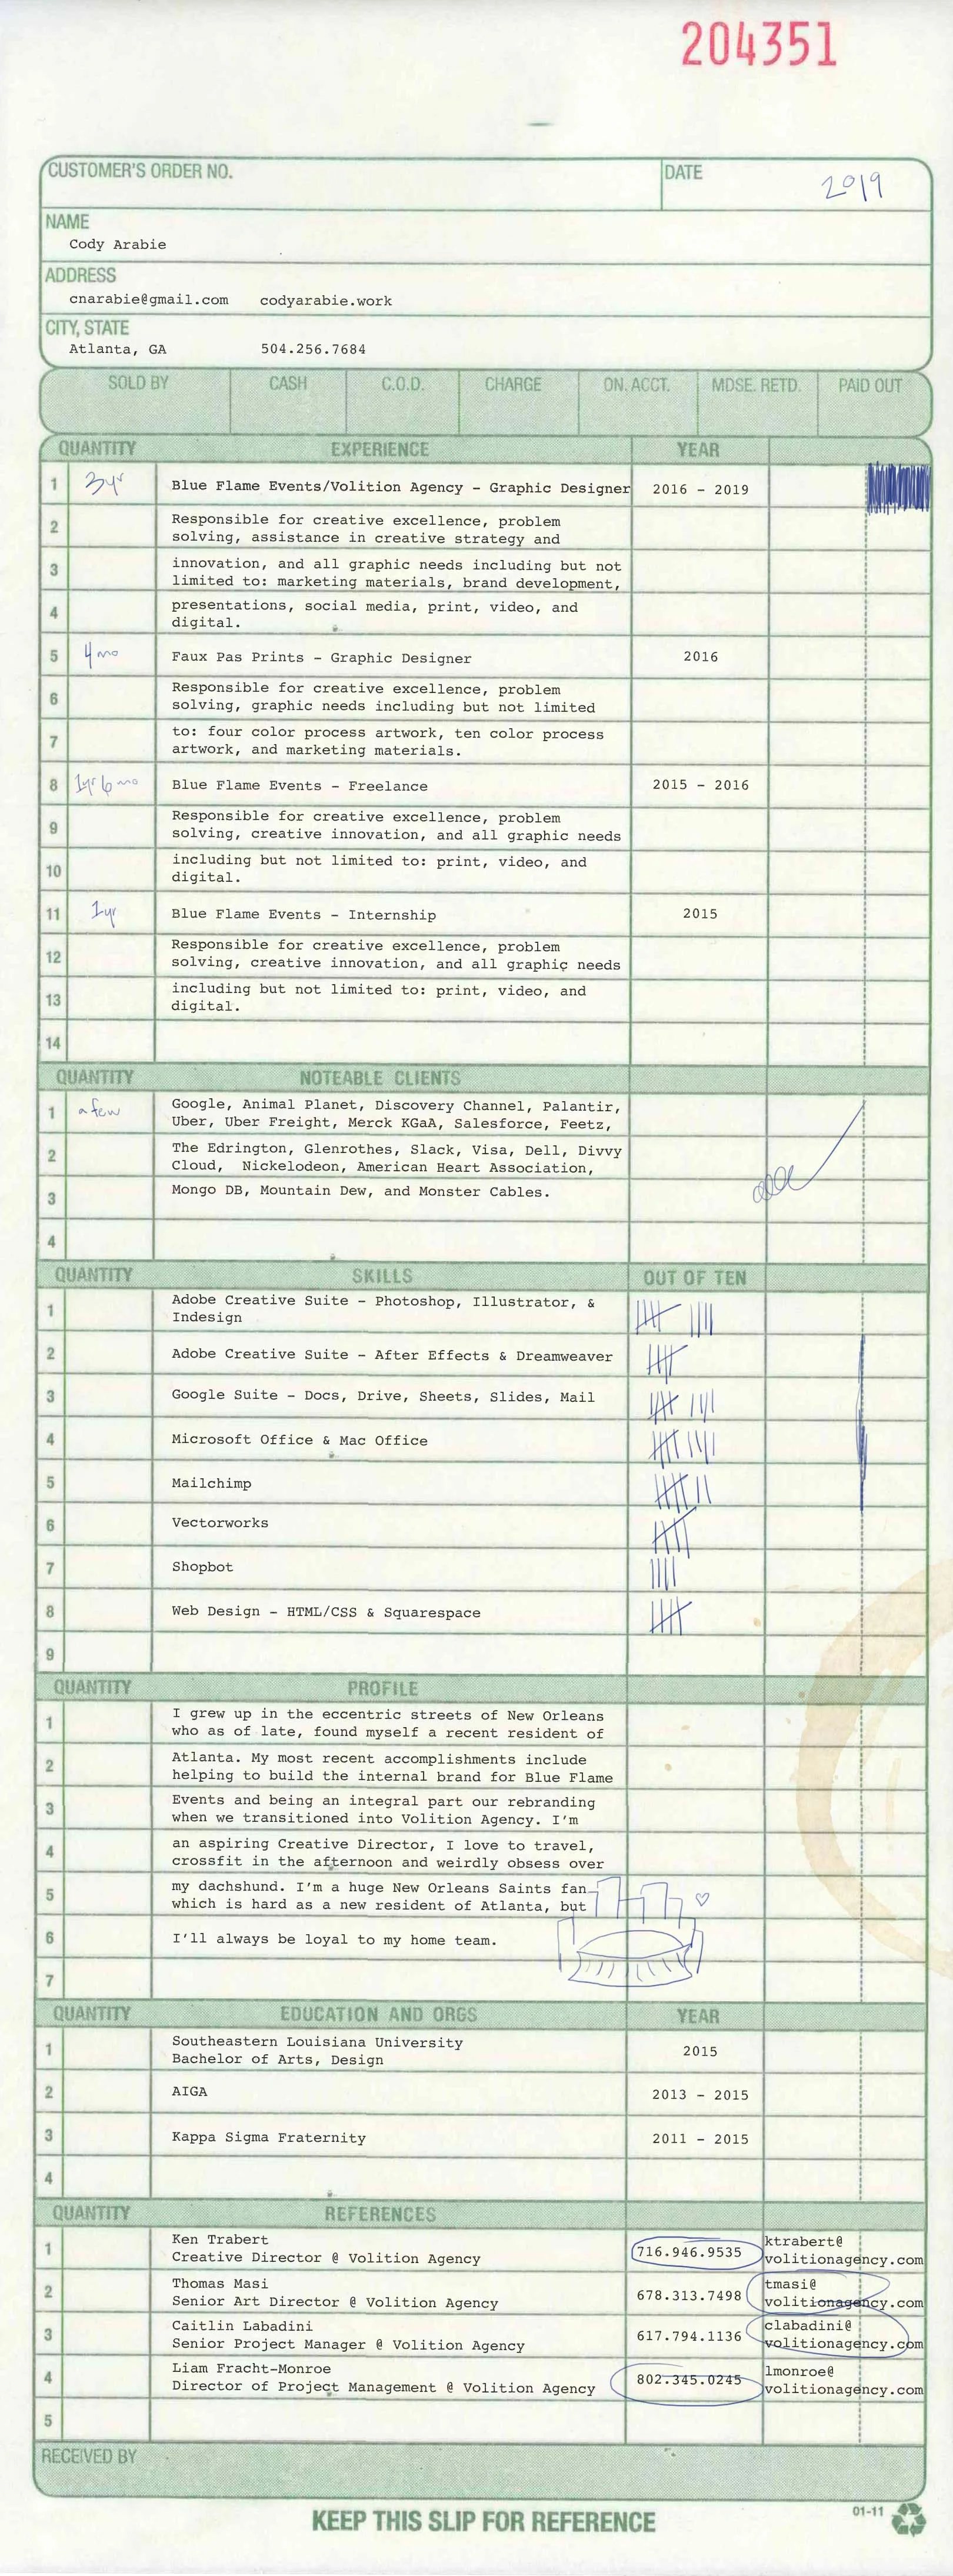 204351
CUSTOMER'S ORDER NO. DATE 2019
NAME
Cody Arabie
ADDRESS
cnarabie@gmail.com codyarabie.work
CITY, STATE
Atlanta, GA 504.256.7684
SOLD BY CASH C.O.D. CHARGE ON. ACCT. MDSE. RETD. PAID OUT
QUANTITY EXPERIENCE YEAR
1 3yr Blue Flame Events/Volition Agency - Graphic Designer 2016 - 2019
2 Responsible for creative excellence, problem
solving, assistance in creative strategy and
3 innovation, and all graphic needs including but not
limited to: marketing materials, brand development,
4 presentations, social media, print, video, and
digital.
5 4 mo Faux Pas Prints - Graphic Designer 2016
6 Responsible for creative excellence, problem
solving, graphic needs including but not limited
7 to: four color process artwork, ten color process
artwork, and marketing materials.
8 1yr 6 mo Blue Flame Events - Freelance 2015 - 2016
9 Responsible for creative excellence, problem
solving, creative innovation, and all graphic needs
10 including but not limited to: print, video, and
digital.
11 1yr Blue Flame Events - Internship 2015
12 Responsible for creative excellence, problem
solving, creative innovation, and all graphic needs
13 including but not limited to: print, video, and
digital.
14
QUANTITY NOTEABLE CLIENTS
1 a few Google, Animal Planet, Discovery Channel, Palantir,
Uber, Uber Freight, Merck KGaA, Salesforce, Feetz,
2 The Edrington, Glenrothes, Slack, Visa, Dell, Divvy
Cloud, Nickelodeon, American Heart Association,
3 Mongo DB, Mountain Dew, and Monster Cables.
4
QUANTITY SKILLS OUT OF TEN
1 Adobe Creative Suite - Photoshop, Illustrator, &
Indesign
2 Adobe Creative Suite - After Effects & Dreamweaver
3 Google Suite - Docs, Drive, Sheets, Slides, Mail
4 Microsoft Office & Mac Office
5 Mailchimp
6 Vectorworks
7 Shopbot
8 Web Design - HTML/CSS & Squarespace
9
QUANTITY PROFILE
1 I grew up in the eccentric streets of New Orleans
who as of late, found myself a recent resident of
2 Atlanta. My most recent accomplishments include
helping to build the internal brand for Blue Flame
3 Events and being an integral part our rebranding
when we transitioned into Volition Agency. I'm
4 an aspiring Creative Director, I love to travel,
crossfit in the afternoon and weirdly obsess over
5 my dachshund. I'm a huge New Orleans Saints fan
which is hard as a new resident of Atlanta, but
6 I'll always be loyal to my home team.
7
QUANTITY EDUCATION AND ORGS YEAR
1 Southeastern Louisiana University
Bachelor of Arts, Design 2015
2 AIGA 2013 - 2015
3 Kappa Sigma Fraternity 2011 - 2015
4
QUANTITY REFERENCES
1 Ken Trabert 716.946.9535 ktrabert@
Creative Director @ Volition Agency volitionagency.com
2 Thomas Masi 678.313.7498 tmasi@
Senior Art Director @ Volition Agency volitionagency.com
3 Caitlin Labadini 617.794.1136 clabadini@
Senior Project Manager @ Volition Agency volitionagency.com
4 Liam Fracht-Monroe 802.345.0245 lmonroe@
Director of Project Management @ Volition Agency volitionagency.com
5
RECEIVED BY
KEEP THIS SLIP FOR REFERENCE 01-11